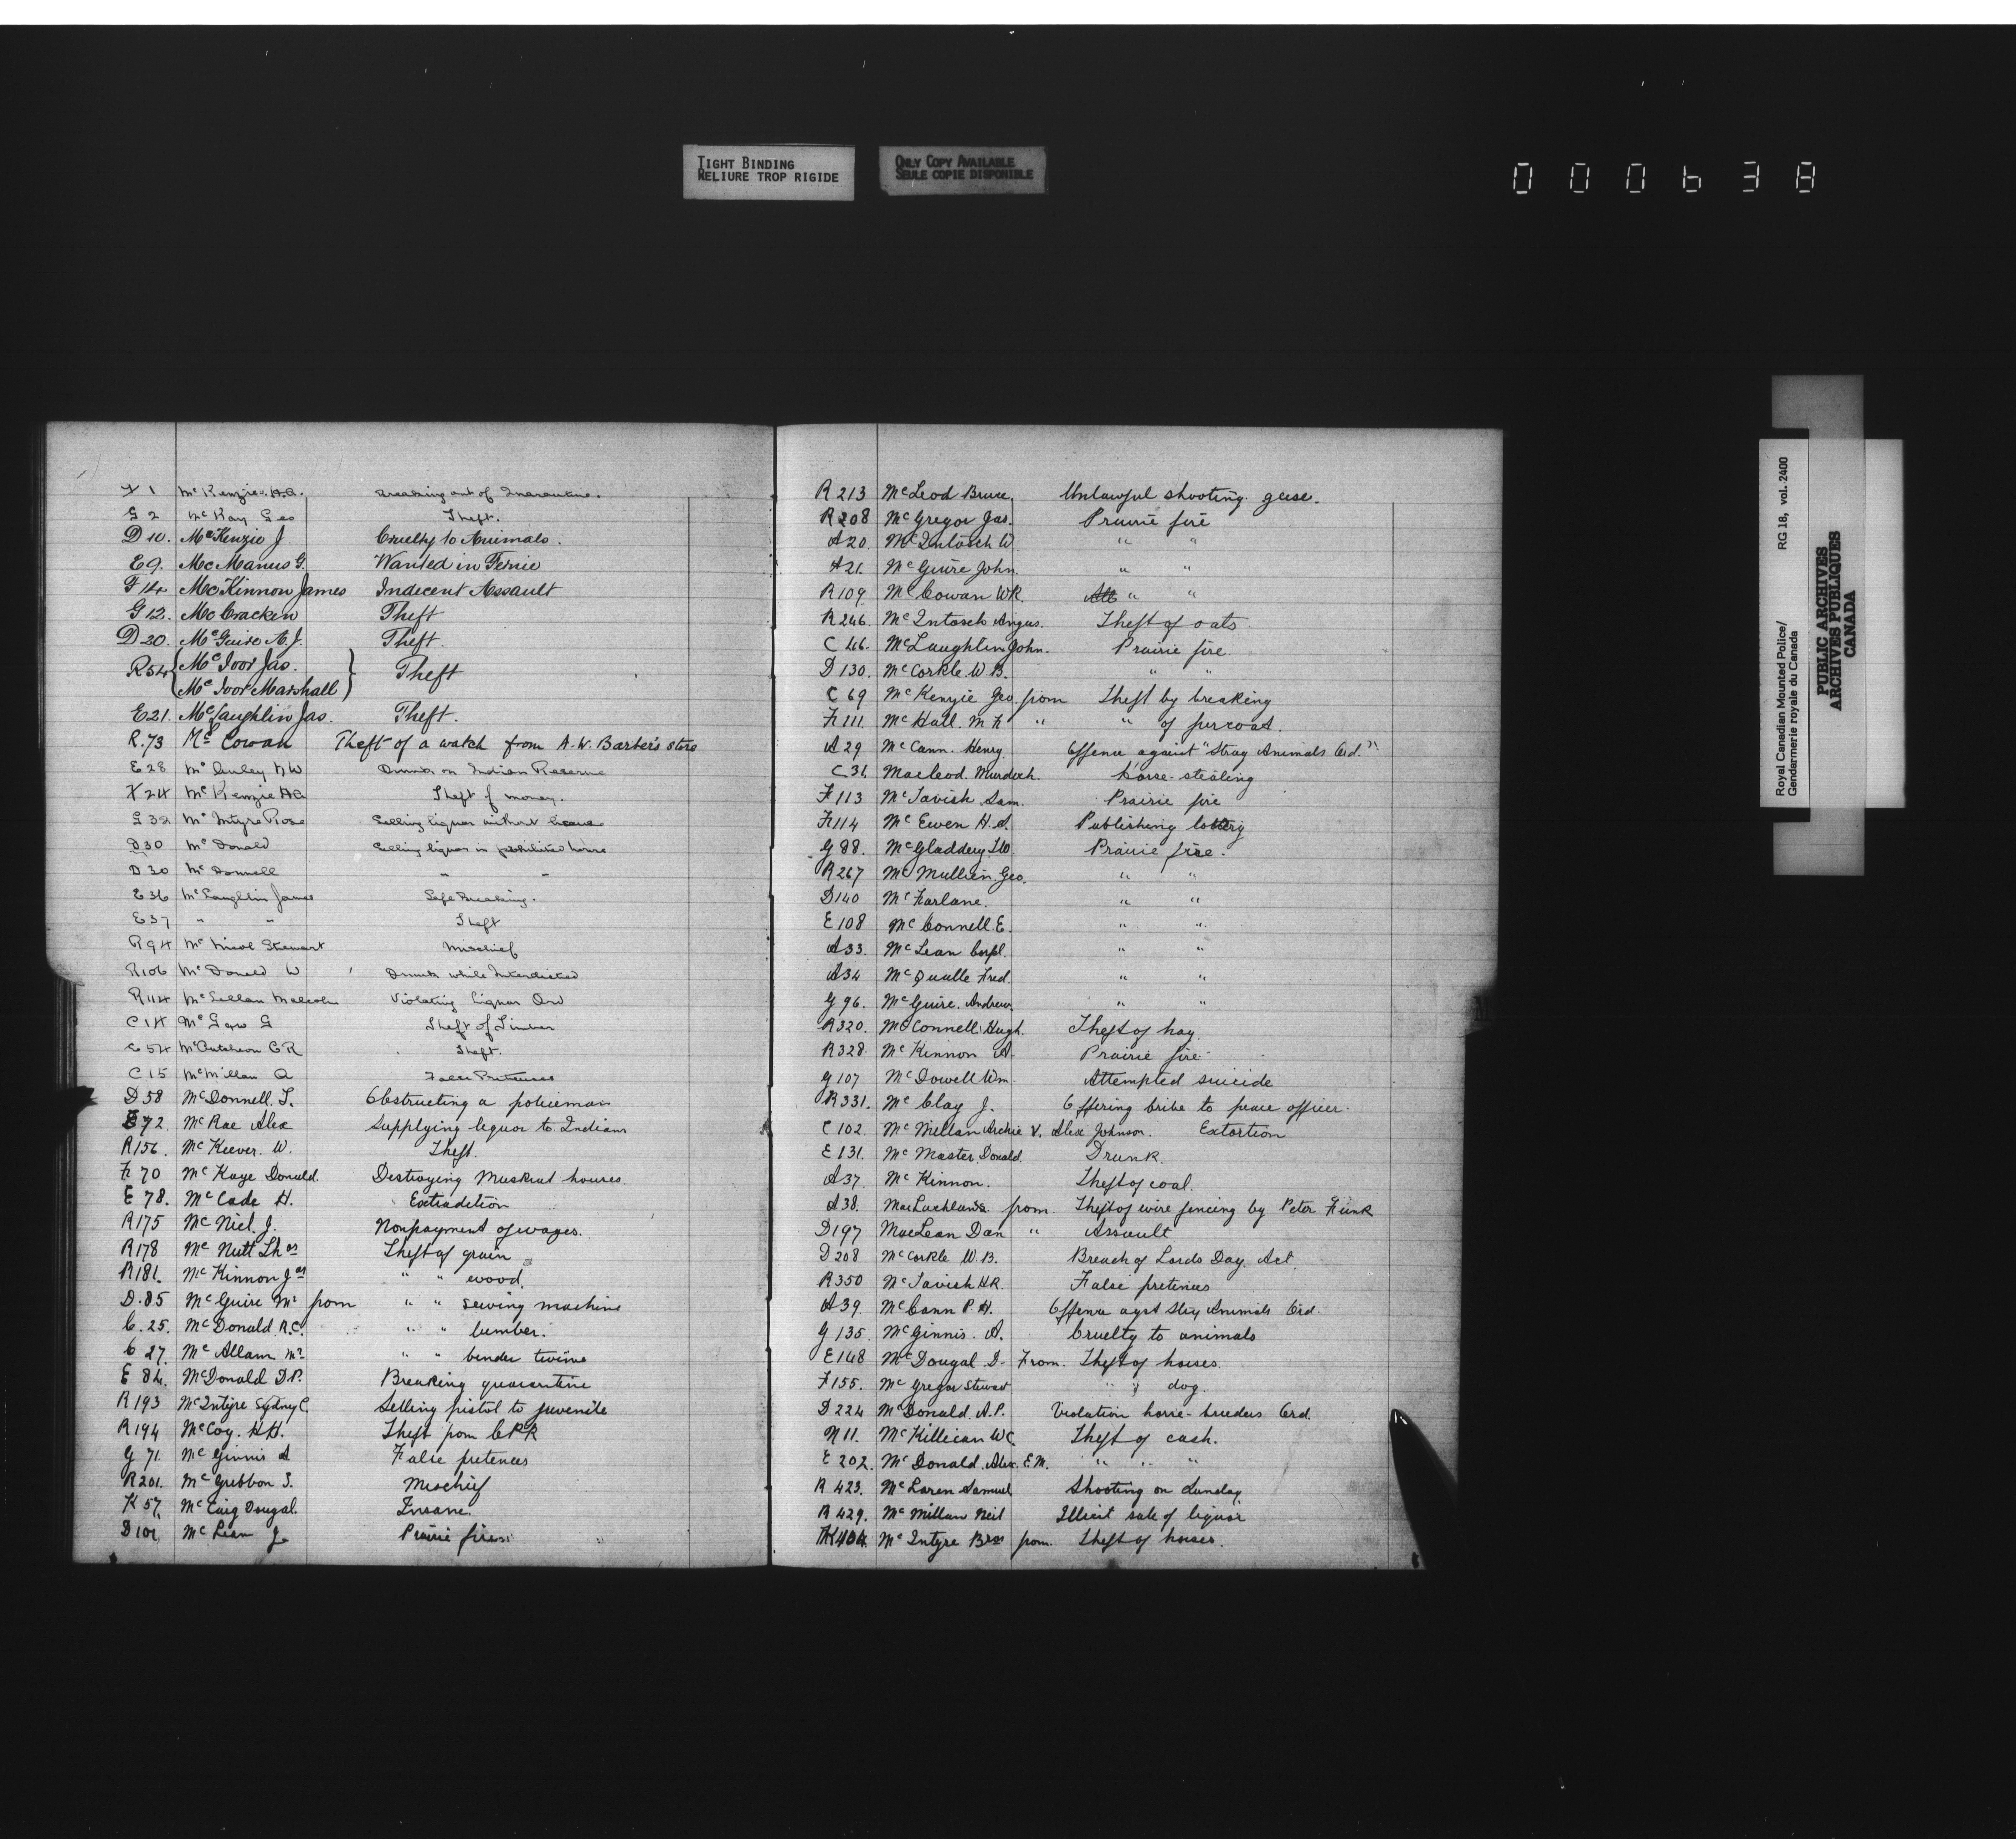 TIGHT BINDING
RELIURE TROP RIGIDE
ONLY COPY AVAILABLE
SEULE COPIE DISPONIBLE
000638
1 McKenzie H.A. Breaking out of Quarantine.
G 2 McKay Geo Theft.
D 10. McKenzie J Cruelty to Animals.
E 9. McManus G. Wanted in Fernie
F 14 McKinnon James Indecent Assault
G 12. McCracken Theft
D 20. McGuire A.J. Theft.
R 54 { McIvor Jas. } Theft
McIvor Marshall
E 21. McLaughlin Jas. Theft.
R. 73 Mc Cowan Theft of a watch from A.W. Barber's store
E 28 Mc NW Drunk on Indian Reserve
24 McKenzie HA Theft of money.
G 38 McIntyre Rose Selling liquor without licence
D 30 McDonald Selling liquor in prohibited house
D 30 McDonnell " "
E 36 McLaughlin James Safe Breaking.
E 37 " " Theft
R 94 McNicol Stewart Mischief
R 106 McDonald W Drunk while Interdicted
R 114 McLellan Malcolm Violating Liquor Ord
C 14 McGaw G Theft of Timber
E 54 McCutcheon C R Theft.
C 15 McMillan A False Pretences
D 58 McDonnell. T. Obstructing a policeman
E 72. McRae Alex Supplying liquor to Indians
R 156. McKeever. W. Theft.
F 70 McKaye Donald. Destroying Muskrat houses.
E 78. McCade H. Extradition
R 175 McNiel. J. Nonpayment of wages.
R 178 McNutt Thos Theft of grain
R 181. McKinnon Jas " " wood.
D. 85 McGuire Mr from " " sewing machine
C. 25. McDonald. R.C. " " lumber.
C 27. McAllam Mr " " binder twine
E 84. McDonald D.P. Breaking quarantine
R 193 McIntyre Sydney C. Selling pistol to juvenile
R 194 McCoy. H.H. Theft from CPR
G 71. McGinnis A False pretences
R 201. McGribbon S. Mischief
K 57. McCaig Dougal. Insane.
D 101. McLean J. Prairie fires.
R 213 McLeod Bruce. Unlawful shooting geese.
R 208 McGregor Jas. Prairie fire
A 20. McIntosch W. " "
A 21. McGuire John. " "
R 109. McCowan WR. " "
R 246. McIntosch Angus. Theft of oats
C 46. McLaughlin John. Prairie fire
D 130. McCorkle W.B. " "
C 69 McKenzie Geo from Theft by breaking
F 111. McHall. M F " " of furcoat.
A 29 McCann. Henry. Offence against "Stray Animals Ord."
C 31. Macleod. Murdoch. Horse-stealing
F 113 McTavish Sam. Prairie fire
F 114 McEwen H.A. Publishing lottery
G 88. McGladdery Prairie fire.
R 267 McMullien. Geo. " "
D 140 McFarlane. " "
E 108 McConnell E. " "
A 33. McLean Corpl. " "
A 34 McQualle Fred. " "
G 96. McGuire. Andrew. " "
R 320. McConnell Hugh. Theft of hay.
R 328. McKinnon A. Prairie fire
G 107 McDowell Wm. Attempted suicide
R 331. McClay J. Offering bribe to peace officer.
C 102. McMillan Archie v. Alex Johnson. Extortion
E 131. McMaster Donald. Drunk.
A 37. McKinnon. Theft of coal.
A 38. MacLachlan from. Theft of wire fencing by Peter Funk
D 197 MacLean Dan " Assault
D 208 McCorkle W.B. Breach of Lords Day. Act.
R 350 McTavish H.R. False pretences
A 39. McCann P.H. Offence agst Stray Animals Ord.
G 135. McGinnis. A. Cruelty to animals
E 148 McDougal. D. From. Theft of horses.
F 155. McGregor Stewart " " dog.
D 224 McDonald. A.P. Violation horse-breeders Ord.
N 11. McKillican WC. Theft of cash.
E 202. McDonald. Alex. E.M. " " "
R 423. McLaren Samuel Shooting on Sunday.
R 429. McMillan Neil Illicit sale of liquor
K 404. McIntyre Bros from. Theft of horses.
Royal Canadian Mounted Police/ RG 18, vol. 2400
Gendarmerie royale du Canada
PUBLIC ARCHIVES
ARCHIVES PUBLIQUES
CANADA